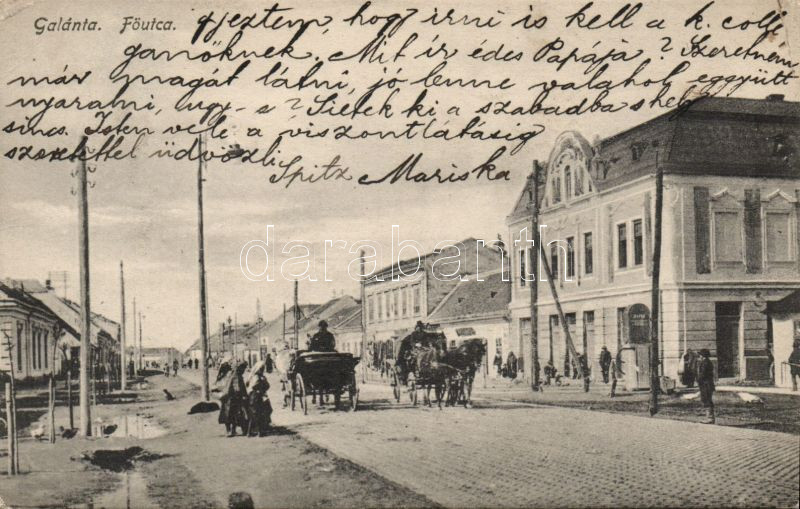 Galánta. Főutca.
ijeztem, hogy irni is kell a k. coll
ganőknek. Mit ir édes Papája? Szeretném
már magát látni, jó lenne valahol együtt
nyaralni, ugy-e? Sietek ki a szabadba s hely
sincs. Isten vele a viszontlátásig
szeretettel üdvözli
Spitz Mariska
darabanth